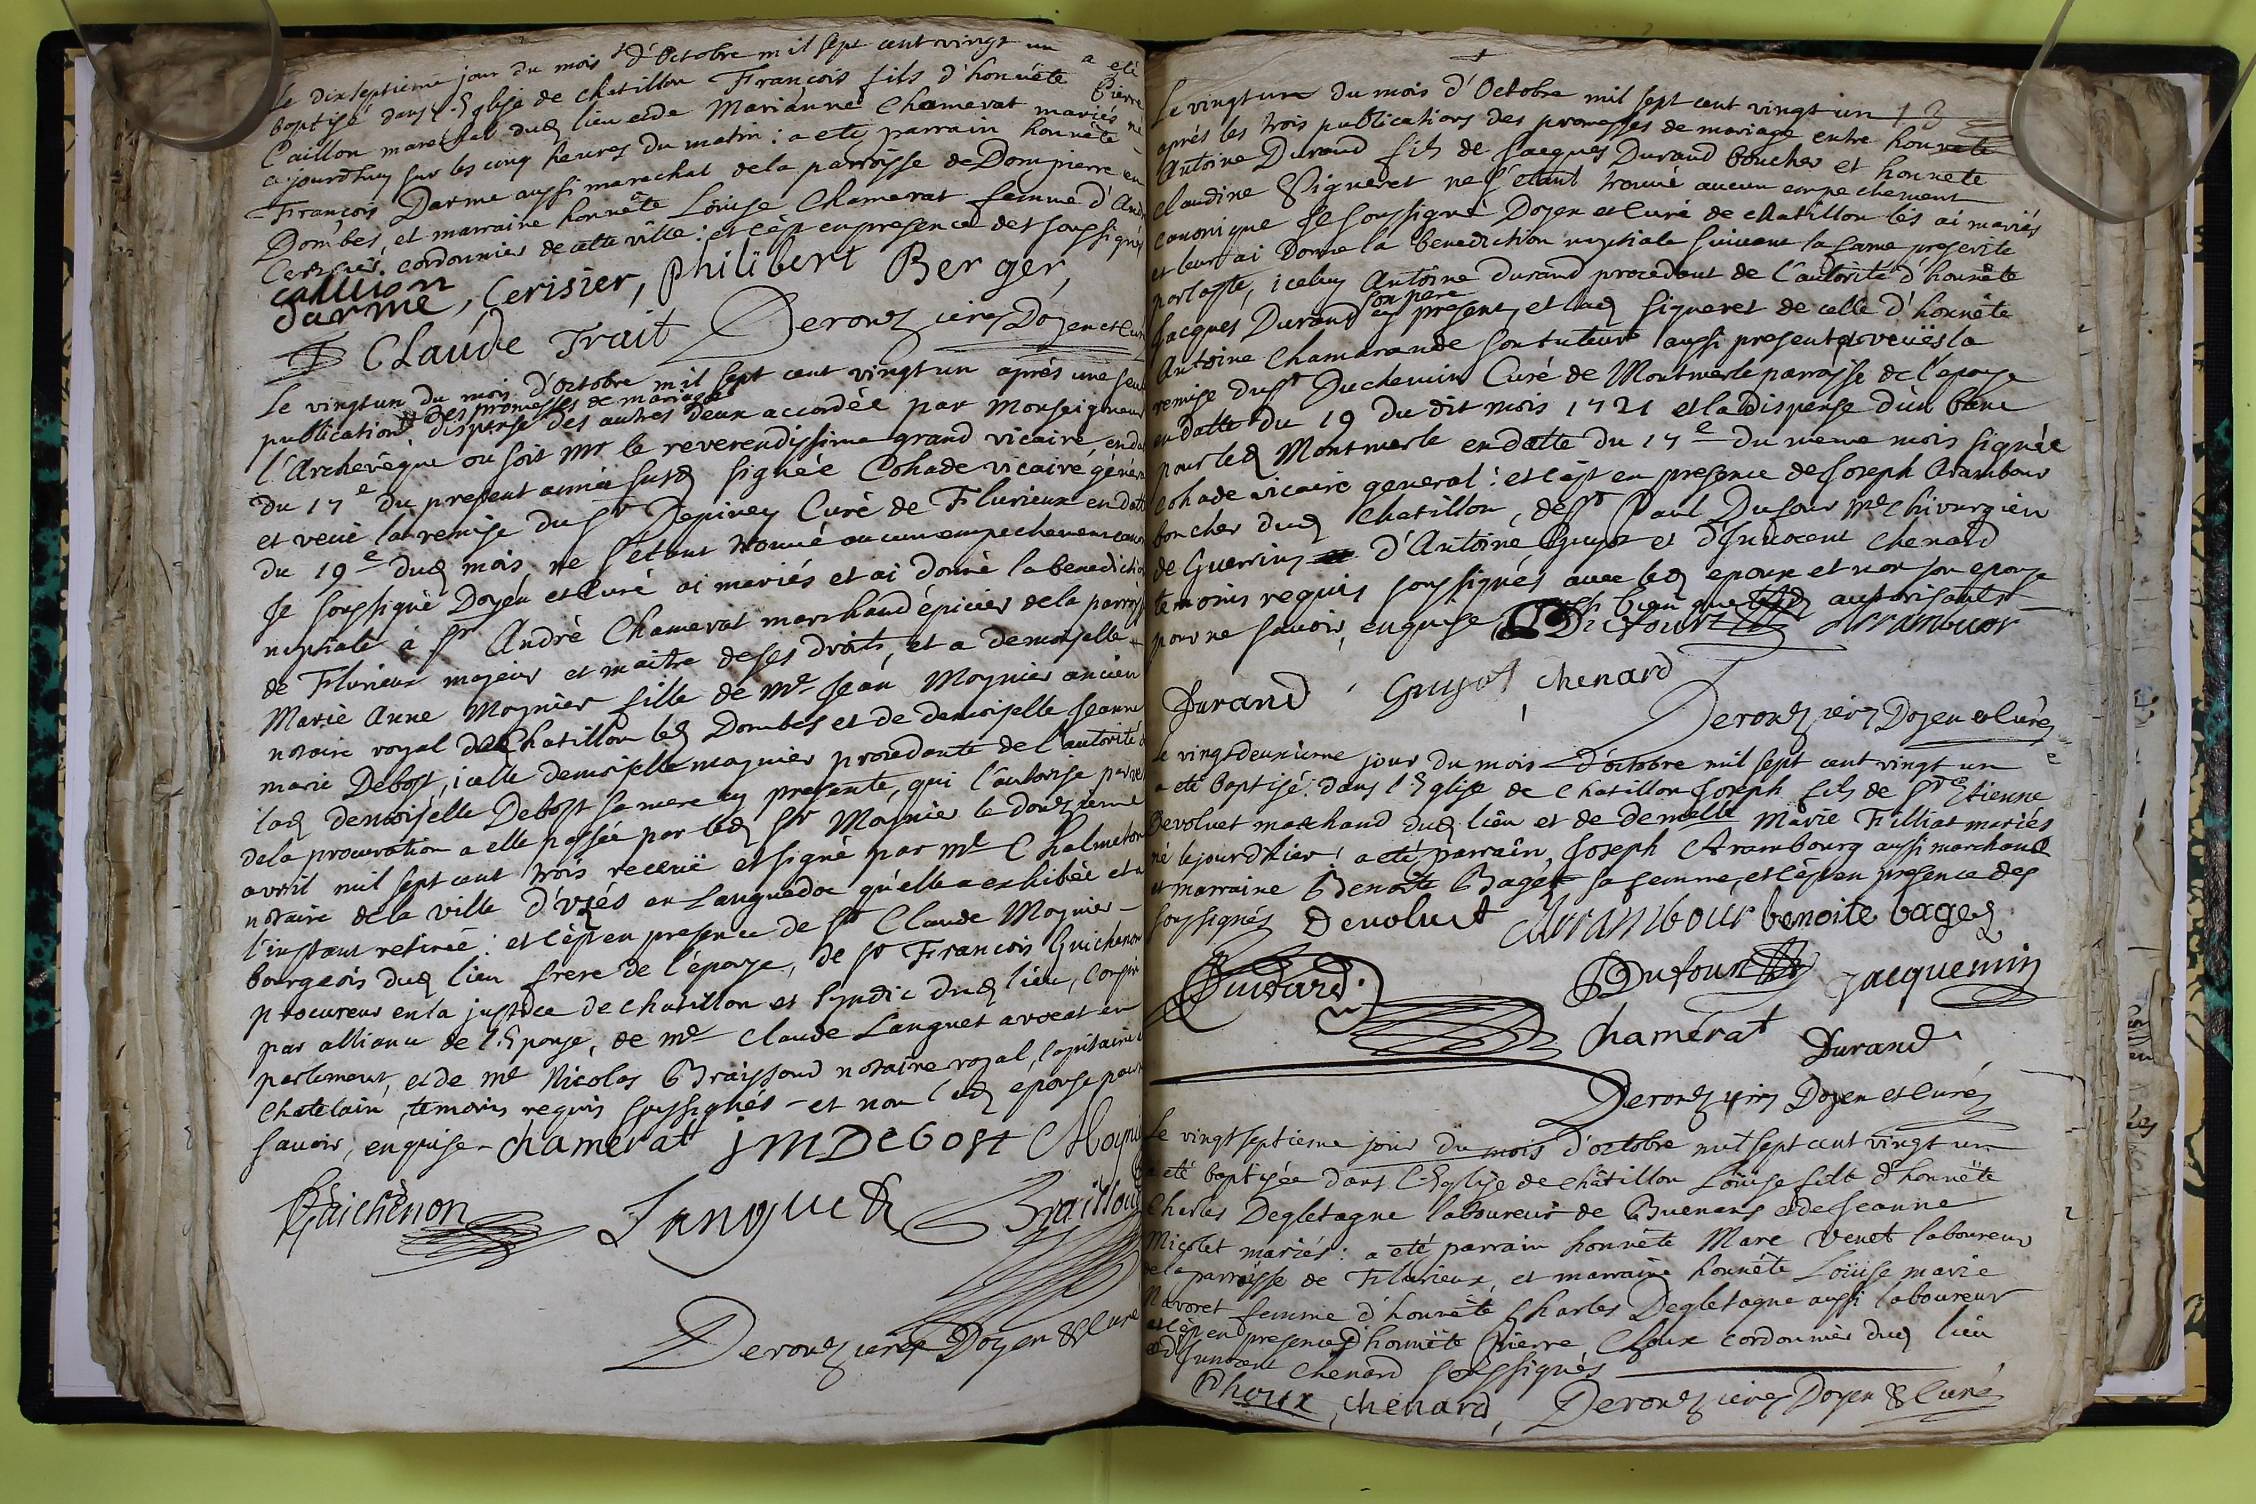 Le dixseptieme jour du mois d'Octobre mil sept cent vingt un a eté
baptisé dans l'Eglise de Chatillon François fils d'honnête Pierre
Caillon marechal dud lieu et de Marianne Chamerat mariés né
ajourdhuy sur les cinq heures du matin : a eté parrain honnête
François Darme aussi marechal de la parroisse de Dompierre en
Dombes, et marraine honnête Loüise Chamerat femme d'André
Cerisier cordonnier de cette ville : et c'est en presence des soussignés
caillion
darme, Cerisier, philibert Berger,
Claude Trait Derouzieres Doyen et Curé
Le vingtun du mois d'octobre mil sept cent vingtun aprés une seule
publication des promesses de mariage
dispense des autres deux accordée par Monseigneur
l'Archevêque ou soit Mr le reverendissime grand vicaire, en datte
du 17e du present année susd signée Cohade vicaire géneral
et veüe la remise du Sr Depiney Curé de Flurieux en datte
du 19e dud mois ne s'etant trouvé aucun empechement
Je soussigné Doyen et Curé ai mariés et ai donné la benediction
nuptiale à Sr André Chamerat marchand épicier de la parroisse
de Flurieux majeur et maitre de ses droits, et a demoiselle
Marie Anne Moynier fille de Me Jean Moynier ancien
notaire royal de Chatillon les Dombes et de demoiselle Jeanne
marie Debost, icelle demoiselle moynier procedante de l'autorité de
lad demoiselle Debost sa mere cy presente, qui l'autorise par
de la procuration a elle passée par led Sr Moynier le douzieme
avril mil sept cent trois receuë et signé par Me Chalmeton
notaire de la ville d'Uzés en Languedoc qu'elle a exhibée et a
l'instant retirée : et c'est en presence de Sr Claude Moynier
bourgeois dud lieu frere de l'épouse, de Sr François Guichenon
procureur en la justice de chatillon et syndic dud lieu, cousin
par alliance de l'Epouse, de Me Claude Languet avocat en
parlement, et de Me Nicolas Braissoud notaire royal, capitaine
chatelain, temoins requis soussignés et non lad épouse pour ne
savoir, enquise chamerat JM DEBOST Moynier
Guichenon Languet
Derouzieres Doyen & Curé
Le vingtun du mois d'Octobre mil sept cent vingt un 13
aprés les trois publications des promesses de mariage entre honnete
Antoine Durand fils de Jacques Durand boucher et honnete
Claudine Sigueret ne s'etant trouvé aucun empechement
canonique Je soussigné Doyen et Curé de chatillon les ai mariés
et leur ai Donné la benediction nuptiale suivant la forme prescrite
iceluy Antoine Durand procedant de l'autorité d'honnête
Jacques Durand son pere cy present, et lad Sigueret de celle d'honnête
Antoine Chamarande son tuteur aussi present et veües la
remise du Sr Duchemin Curé de Montmerle parroisse de l'epouse
en datte du 19 du dit mois 1721 et la dispense d'un banc
pour led Montmerle en datte du 17e du meme mois signée
Cohade vicaire general : et c'est en presence de Joseph Arambour
boucher dud Chatillon, de Sr Paul Dufour Me Chirurgien
de Guerrins d'Antoine Guyot et d'Innocent Chenard
temoins requis soussignés avec led epoux et non son epouse
pour ne savoir, enquise aussi bien que autorisants
Dufour Arrambuor
Durand Guyot chenard
Derouzieres Doyen et Curé
Le vingtdeuxieme jour du mois d'octobre mil sept cent vingt un
a eté baptisé dans l'Eglise de Chatillon Joseph fils de Sre Etienne
Devoluet marchand dud lieu et de Demelle Marie Filliat mariés
né le jour d'hier : a eté parrain Joseph Arambourg aussi marchand
et marraine Benoite Baget sa femme, et c'est en presence des
soussignés Devoluet Arrambour benoite bages
Dufour Jacquemin
Chamerat Durand
Derouzieres Doyen et Curé
Le vingtseptieme jour du mois d'octobre mil sept cent vingt un
a eté baptisée dans l'Eglise de Châtillon Loüise fille d'honnête
Charles Degletagne laboureur de Buenans et de Jeanne
Micolet mariés : a eté parrain honnête Marc Venet laboureur
de la parroisse de Flurieux, et marraine honnête Loüise marie
Navoret femme d'honnête Charles Degletagne aussi laboureur
et c'est en presence d'honnête Pierre Choux cordonnier dud lieu
et d'Innocent Chenard soussignés
Choux, chenard, Derouzieres Doyen & Curé